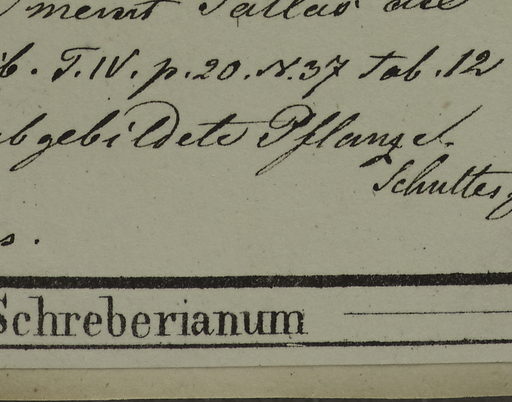 meint Pallas die
ib. T. IV. p. 20. N. 37 tab. 12
abgebildete Pflanze.
Schultes
s.
Schreberianum